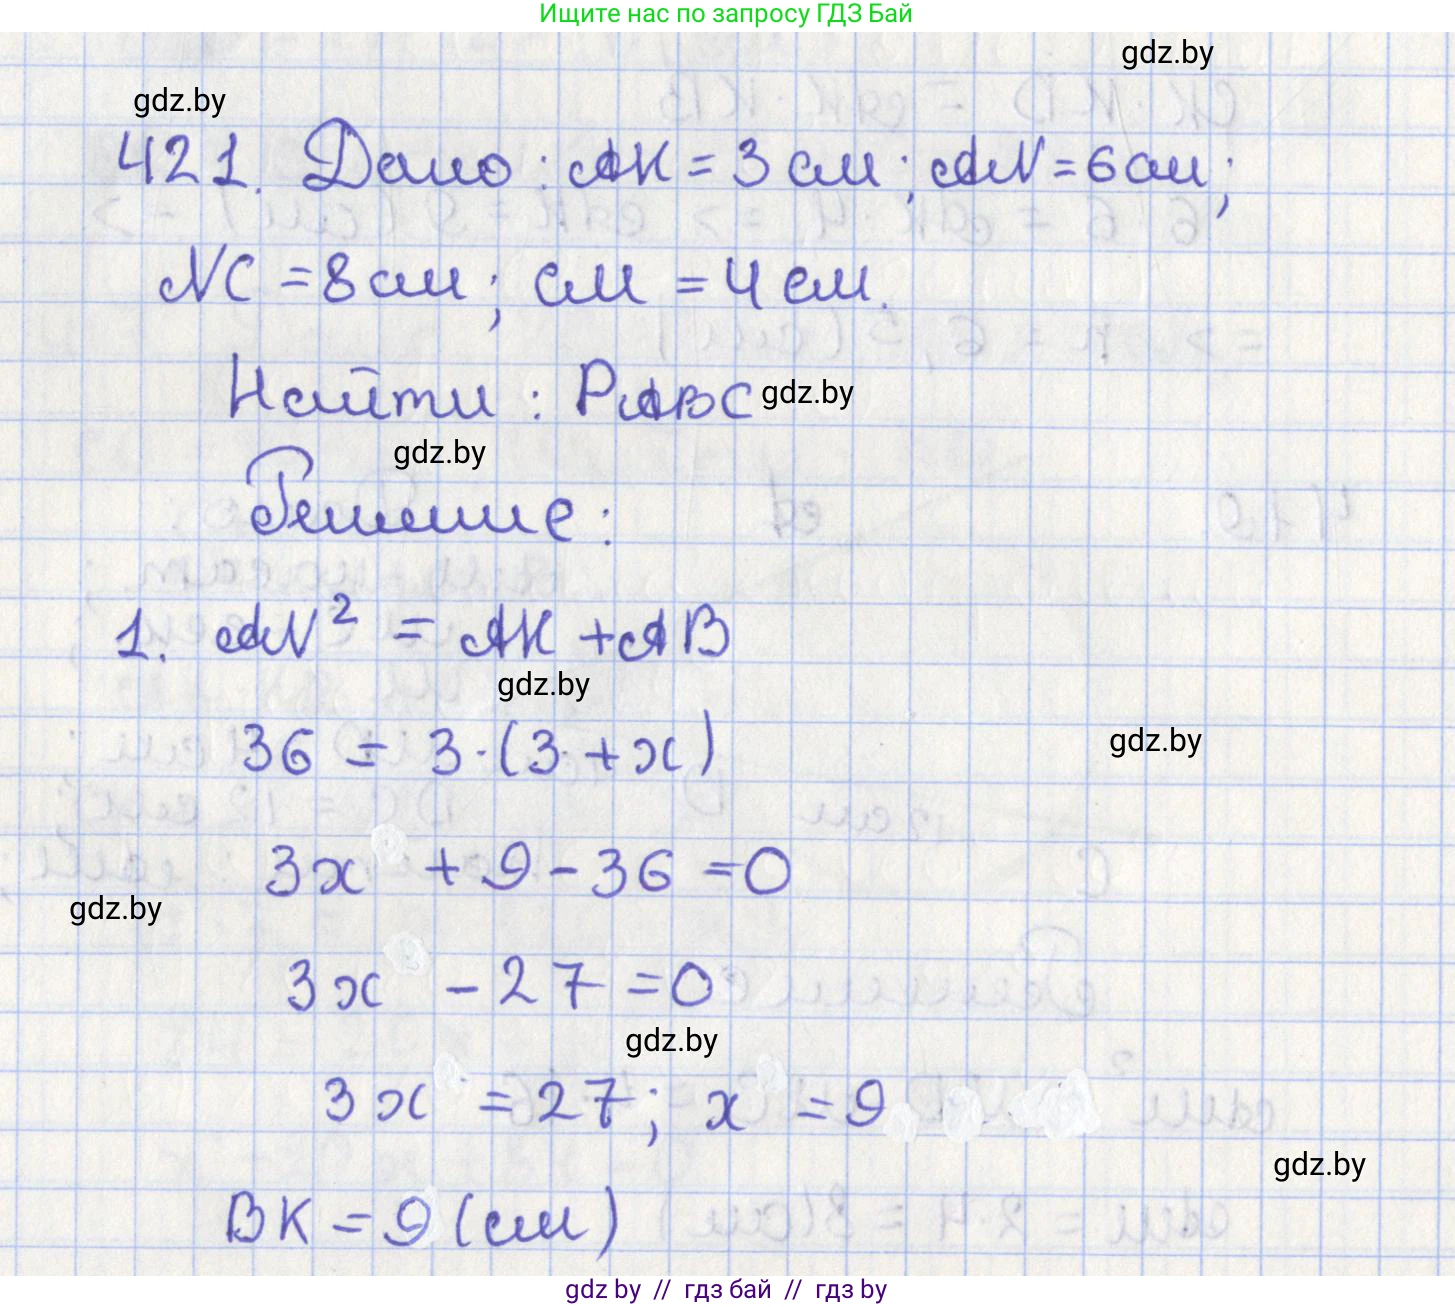 Ищите нас по запросу ГДЗ Бай
gdz.by
gdz.by
421. Дано: AK = 3 см; AN = 6 см;
NC = 8 см; CM = 4 см.
Найти: PABC
gdz.by
gdz.by
Решение:
1. AN² = AK + AB
gdz.by
36 = 3·(3 + x)
gdz.by
3x + 9 - 36 = 0
gdz.by
3x - 27 = 0
gdz.by
3x = 27; x = 9
gdz.by
BK = 9 (см)
gdz by // гдз бай // гдз by